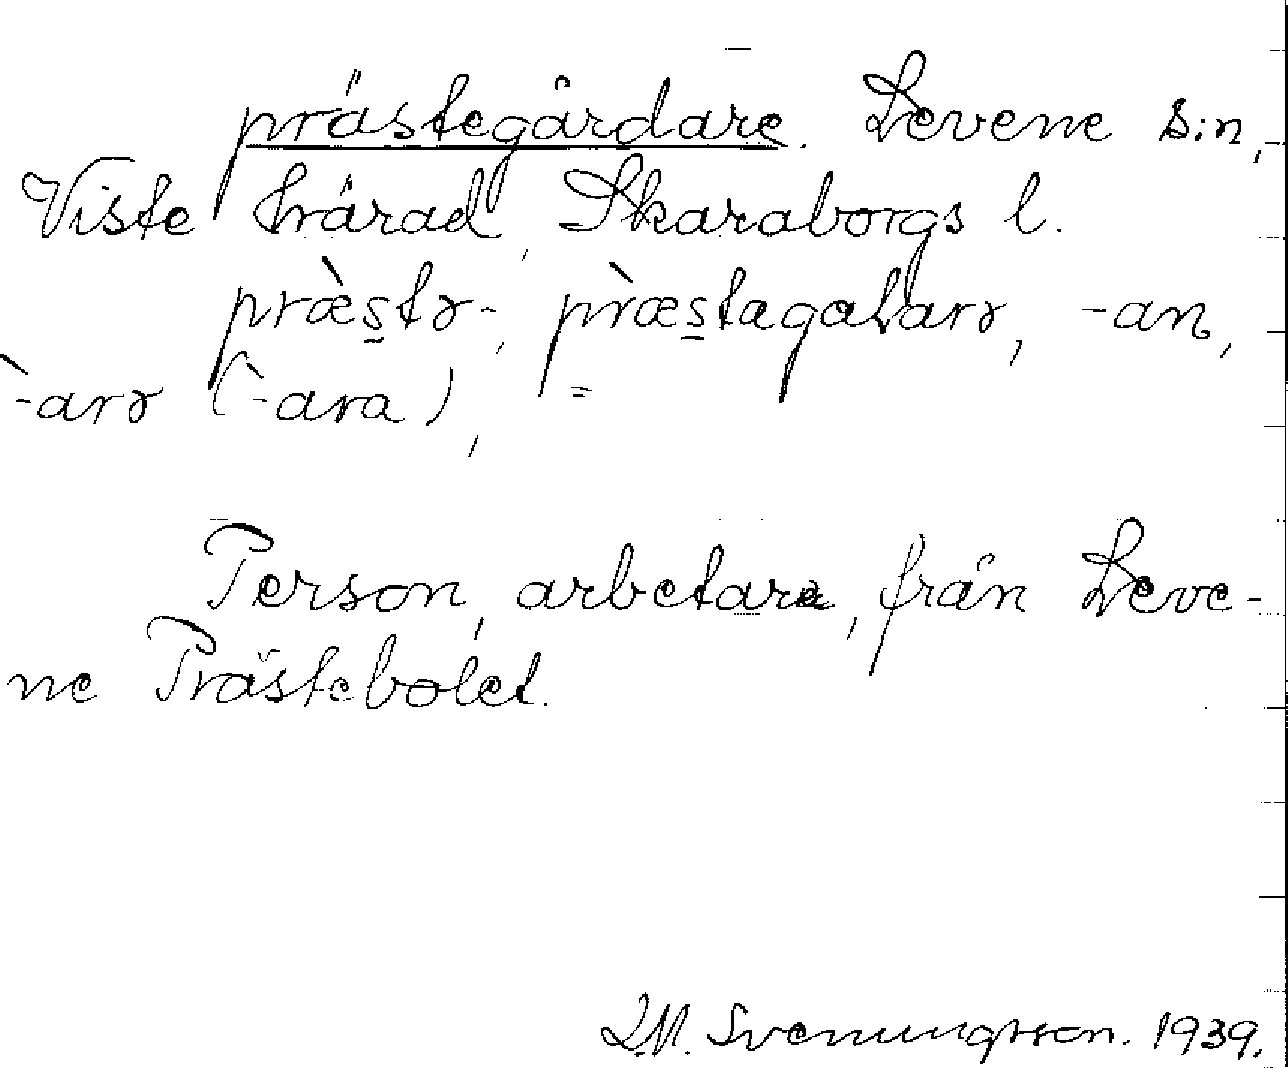 prästegårdare. Levene s:n,
Viste härad, Skaraborgs l.
præ̀stɤ-, præ̀stagaɫarɤ, -an,
-̀arɤ (-̀ara), =
Person, arbetare, från Leve-
ne Prästebolet.
L.M. Svenungsson. 1939.